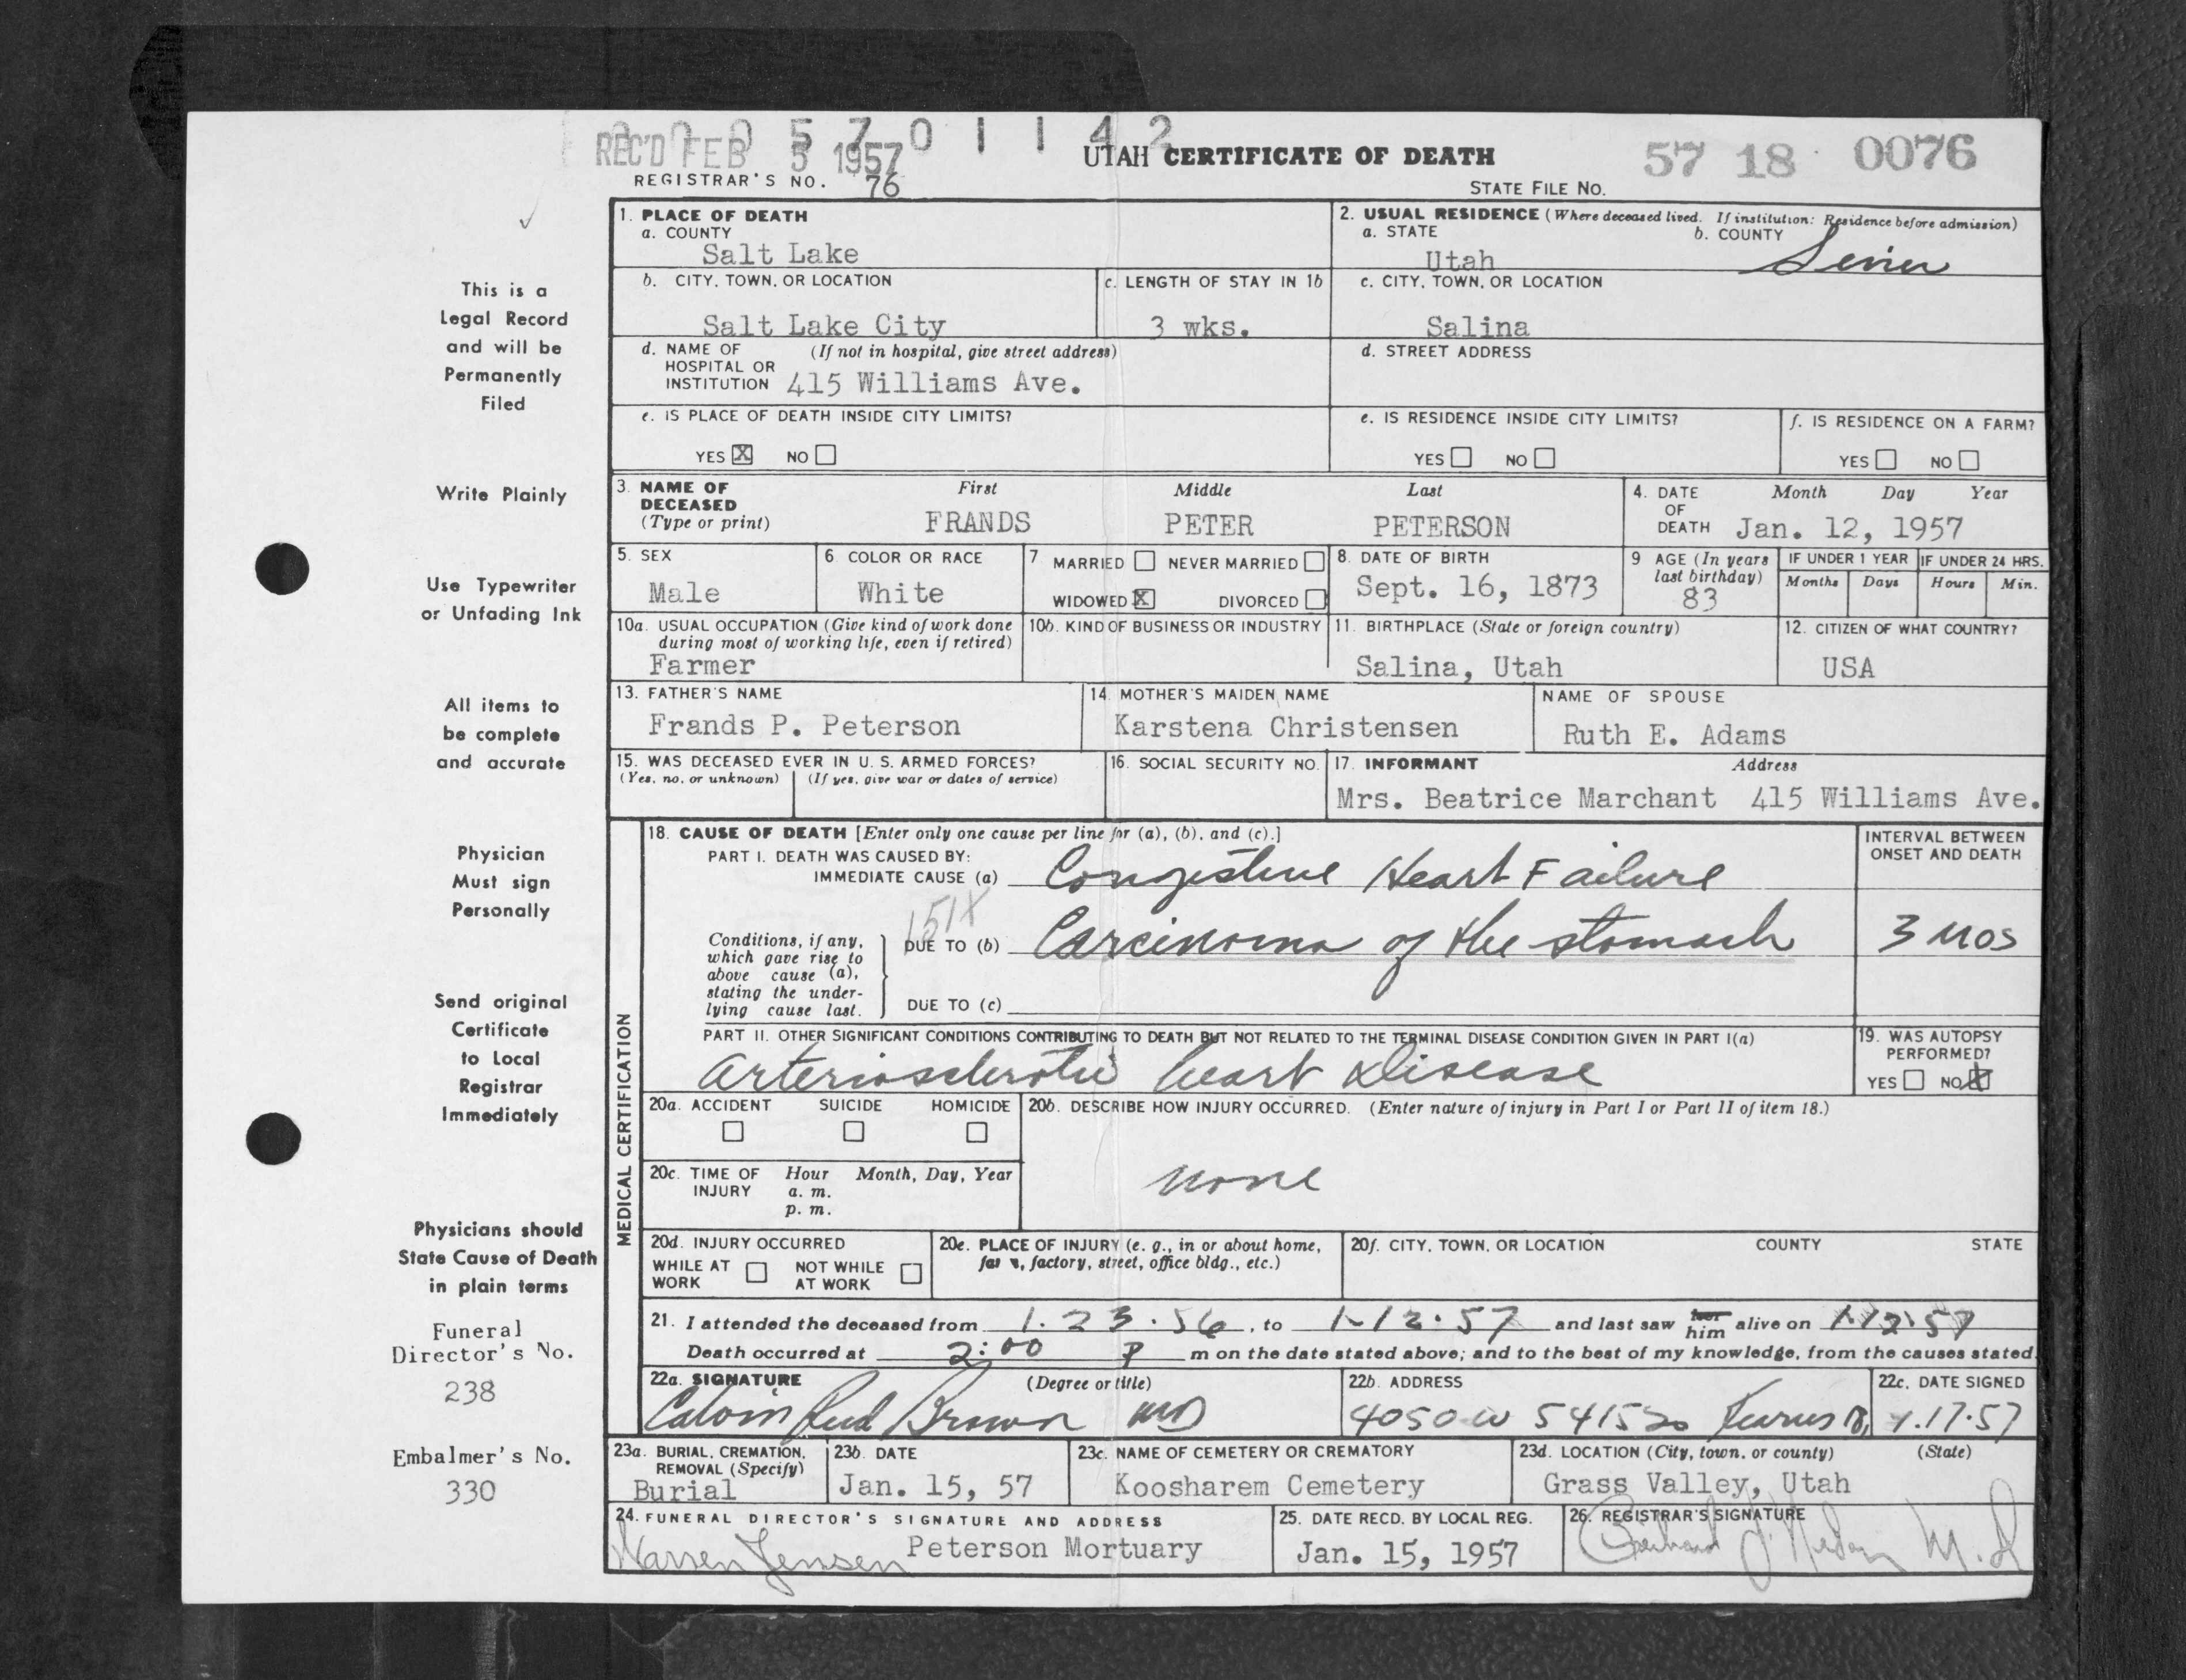 0 0 0 5 7 0 1 1 4 2
REC'D FEB 5 1957
UTAH CERTIFICATE OF DEATH
57 18 0076
REGISTRAR'S NO. 76
STATE FILE NO.
This is a
Legal Record
and will be
Permanently
Filed
Write Plainly
Use Typewriter
or Unfading Ink
All items to
be complete
and accurate
Physician
Must sign
Personally
Send original
Certificate
to Local
Registrar
Immediately
Physicians should
State Cause of Death
in plain terms
Funeral
Director's No.
238
Embalmer's No.
330
1. PLACE OF DEATH
a. COUNTY
Salt Lake
2. USUAL RESIDENCE (Where deceased lived. If institution: Residence before admission)
a. STATE
Utah
b. COUNTY
Sevier
b. CITY, TOWN, OR LOCATION
Salt Lake City
c. LENGTH OF STAY IN 1b
3 wks.
c. CITY, TOWN, OR LOCATION
Salina
d. NAME OF (If not in hospital, give street address)
HOSPITAL OR
INSTITUTION 415 Williams Ave.
d. STREET ADDRESS
e. IS PLACE OF DEATH INSIDE CITY LIMITS?
YES X NO
e. IS RESIDENCE INSIDE CITY LIMITS?
YES NO
f. IS RESIDENCE ON A FARM?
YES NO
3. NAME OF First Middle Last
DECEASED
(Type or print) FRANDS PETER PETERSON
4. DATE Month Day Year
OF
DEATH Jan. 12, 1957
5. SEX
Male
6 COLOR OR RACE
White
7 MARRIED NEVER MARRIED
WIDOWED X DIVORCED
8. DATE OF BIRTH
Sept. 16, 1873
9 AGE (In years
last birthday)
83
IF UNDER 1 YEAR IF UNDER 24 HRS.
Months Days Hours Min.
10a. USUAL OCCUPATION (Give kind of work done
during most of working life, even if retired)
Farmer
10b. KIND OF BUSINESS OR INDUSTRY
11. BIRTHPLACE (State or foreign country)
Salina, Utah
12. CITIZEN OF WHAT COUNTRY?
USA
13. FATHER'S NAME
Frands P. Peterson
14. MOTHER'S MAIDEN NAME
Karstena Christensen
NAME OF SPOUSE
Ruth E. Adams
15. WAS DECEASED EVER IN U. S. ARMED FORCES?
(Yes, no, or unknown) (If yes, give war or dates of service)
16. SOCIAL SECURITY NO.
17. INFORMANT Address
Mrs. Beatrice Marchant 415 Williams Ave.
MEDICAL CERTIFICATION
18. CAUSE OF DEATH [Enter only one cause per line for (a), (b), and (c).]
INTERVAL BETWEEN
ONSET AND DEATH
PART I. DEATH WAS CAUSED BY:
IMMEDIATE CAUSE (a) Congestive Heart Failure
151X
Conditions, if any,
which gave rise to
above cause (a),
stating the under-
lying cause last.
DUE TO (b) Carcinoma of the stomach 3 mos
DUE TO (c)
PART II. OTHER SIGNIFICANT CONDITIONS CONTRIBUTING TO DEATH BUT NOT RELATED TO THE TERMINAL DISEASE CONDITION GIVEN IN PART I(a)
Arteriosclerotic heart disease
19. WAS AUTOPSY
PERFORMED?
YES NO X
20a. ACCIDENT SUICIDE HOMICIDE
20b. DESCRIBE HOW INJURY OCCURRED. (Enter nature of injury in Part I or Part II of item 18.)
none
20c. TIME OF Hour Month, Day, Year
INJURY a. m.
p. m.
20d. INJURY OCCURRED
WHILE AT NOT WHILE
WORK AT WORK
20e. PLACE OF INJURY (e. g., in or about home,
factory, street, office bldg., etc.)
20f. CITY, TOWN, OR LOCATION COUNTY STATE
21. I attended the deceased from 1.23.56, to 1-12.57 and last saw her him alive on 1.12.57
Death occurred at 2:00 P m on the date stated above; and to the best of my knowledge, from the causes stated.
22a. SIGNATURE (Degree or title)
Calvin Brown MD
22b. ADDRESS
4050 W 5415 So
22c. DATE SIGNED
1.17.57
23a. BURIAL, CREMATION,
REMOVAL (Specify)
Burial
23b. DATE
Jan. 15, 57
23c. NAME OF CEMETERY OR CREMATORY
Koosharem Cemetery
23d. LOCATION (City, town, or county) (State)
Grass Valley, Utah
24. FUNERAL DIRECTOR'S SIGNATURE AND ADDRESS
Warren Jensen Peterson Mortuary
25. DATE RECD. BY LOCAL REG.
Jan. 15, 1957
26. REGISTRAR'S SIGNATURE
M.D